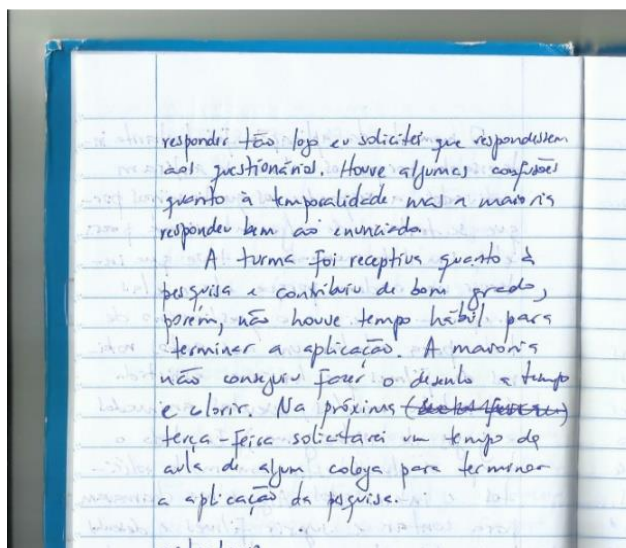 responder tão logo eu solicitei que respondessem
aos questionários. Houve algumas confusões
quanto à temporalidade mas a maioria
respondeu bem ao enunciado.
A turma foi receptiva quanto à
pesquisa e contribuiu de bom grado,
porém, não houve tempo hábil para
terminar a aplicação. A maioria
não conseguiu fazer o desenho a tempo
e colorir. Na próxima
terça-feira solicitarei um tempo de
aula de algum colega para terminar
a aplicação da pesquisa.